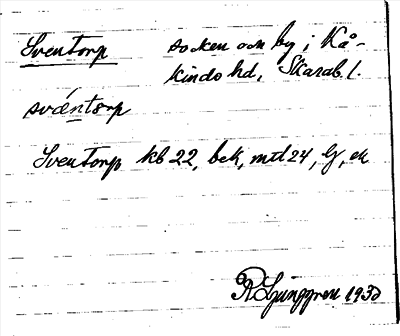 Sventorp socken och by i Kå-
kinds hd, Skarab. l.
sväntsrp
Sventorp kb 22, bek, mtl 24, G, ek
R Ljunggren 1930